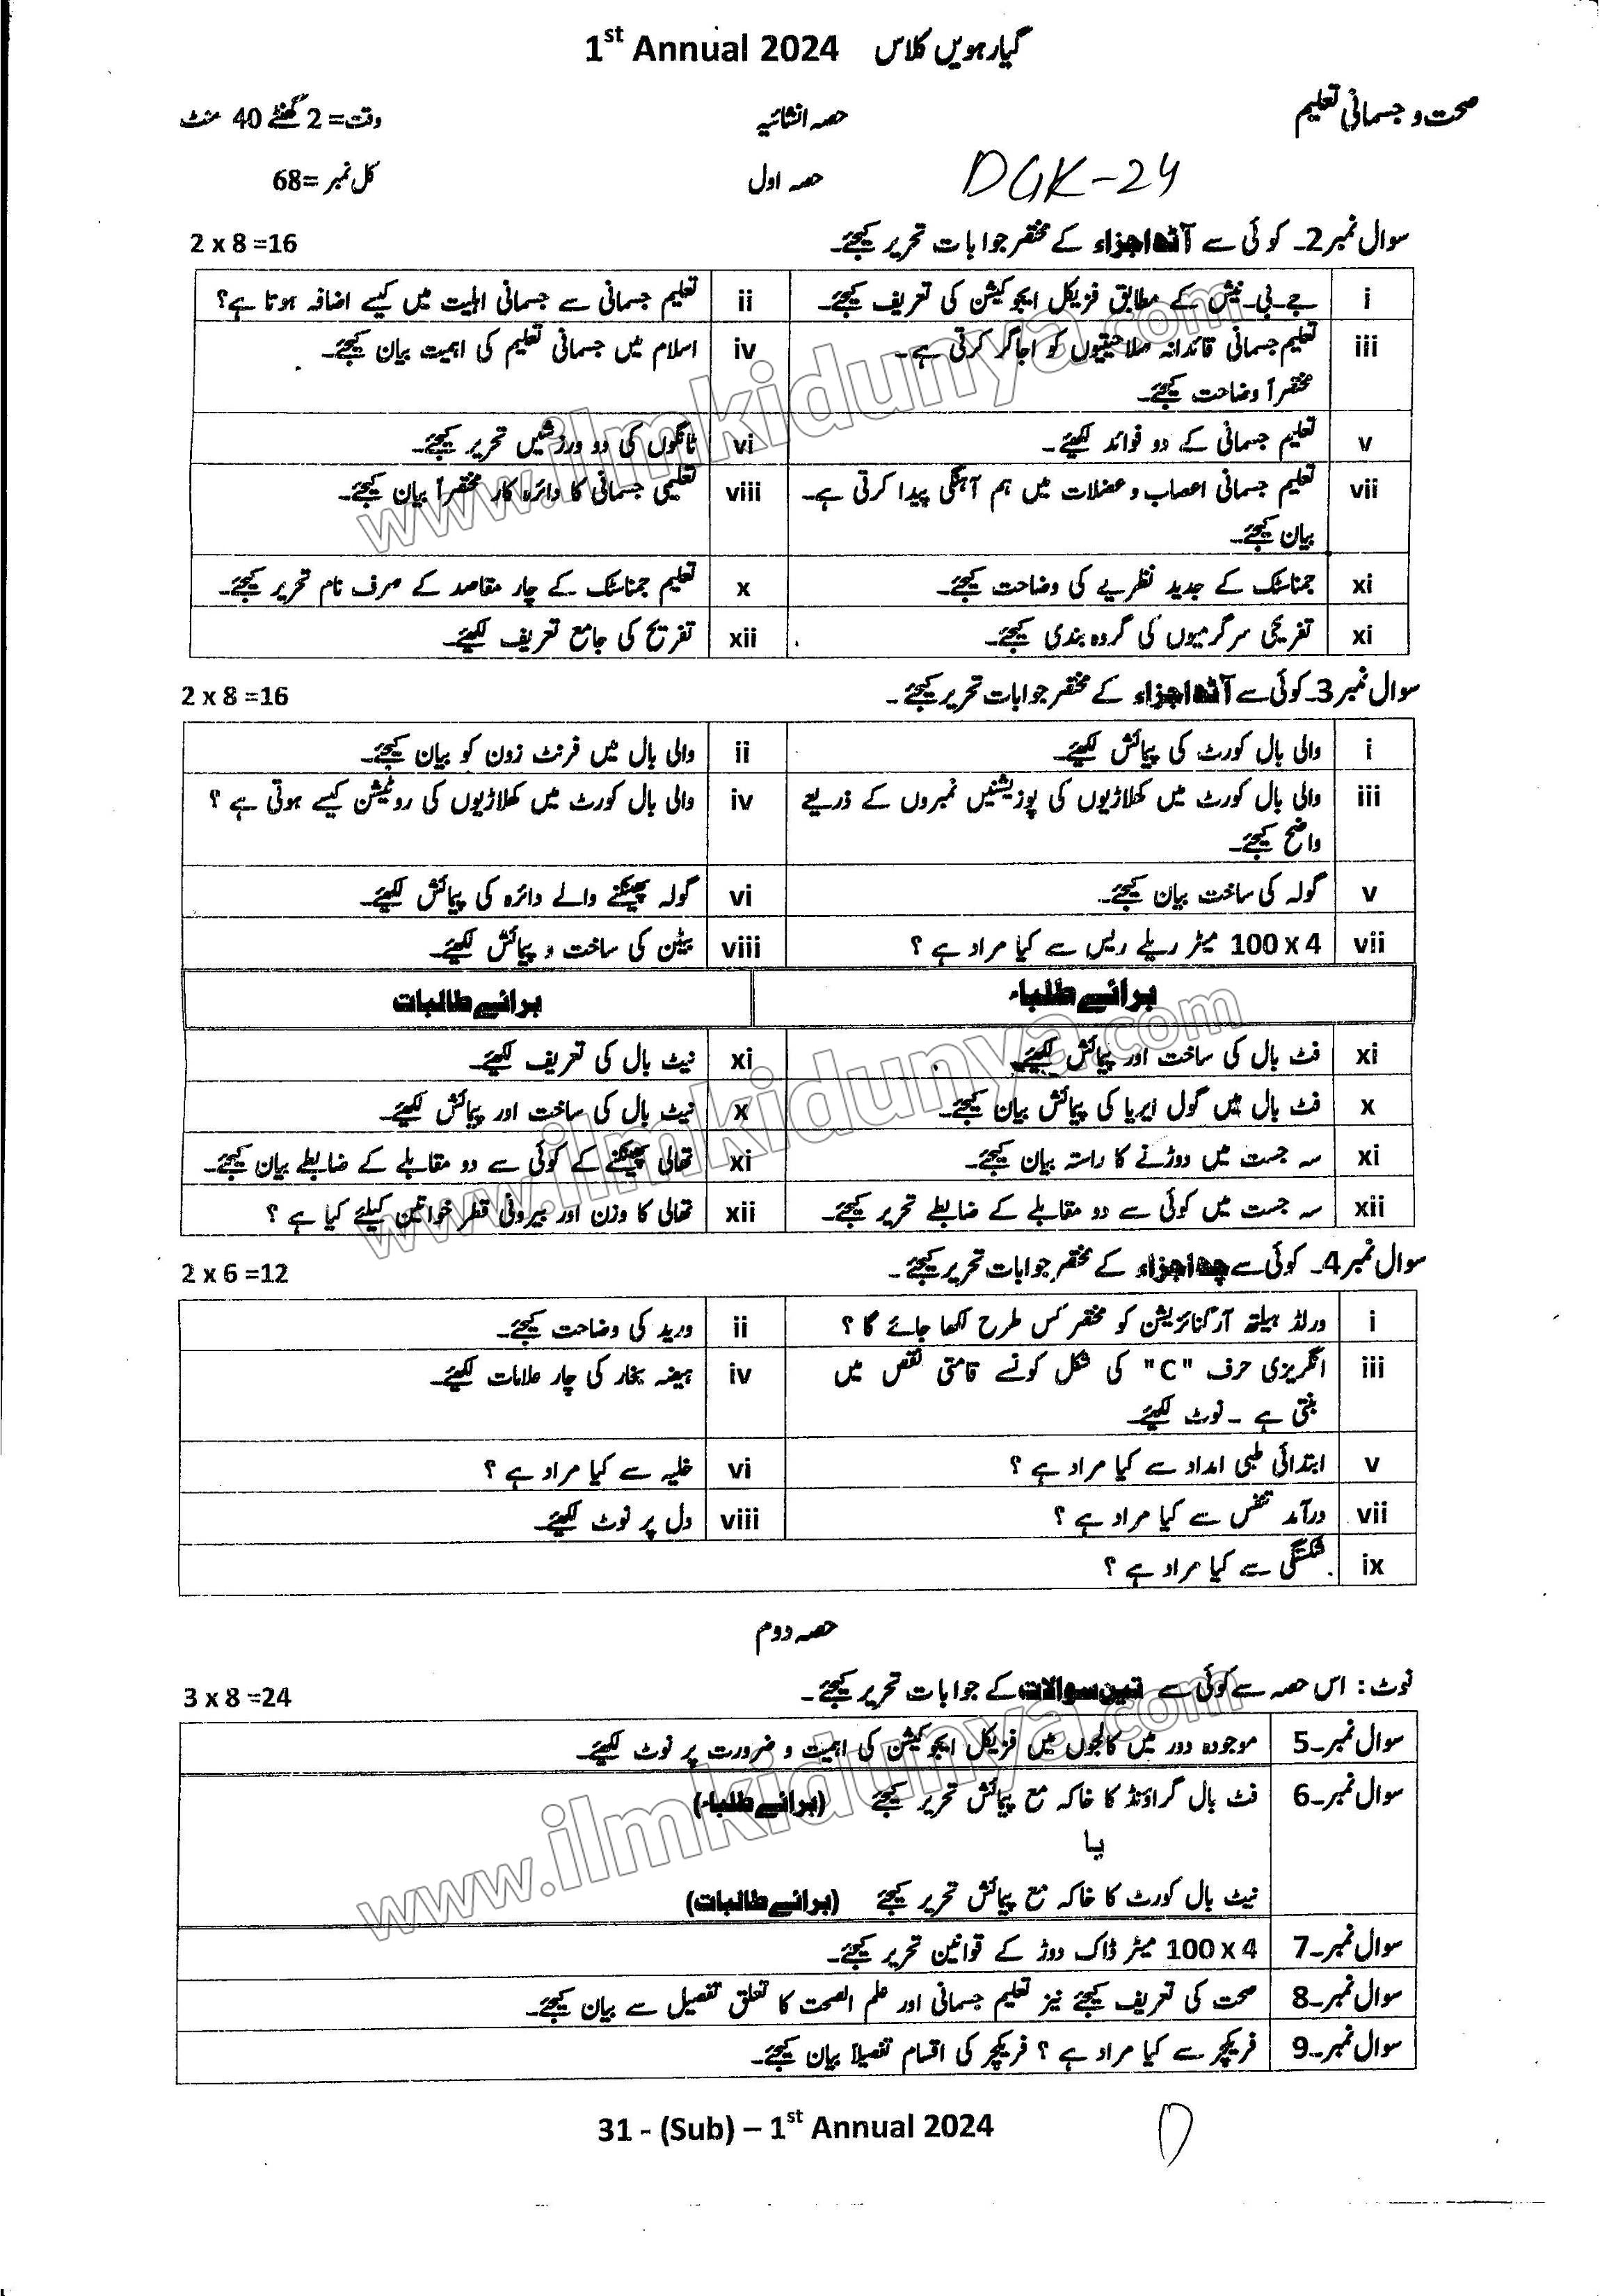 گیارہویں کلاس 1st Annual 2024
صحت و جسمانی تعلیم
حصہ انشائیہ
وقت= 2 گھنٹے 40 منٹ
DGK-24
حصہ اول
کل نمبر =68
سوال نمبر 2۔ کوئی سے آٹھ اجزاء کے مختصر جوابات تحریر کیجئے۔ 2 x 8 =16
i جے۔بی۔نیش کے مطابق فزیکل ایجوکیشن کی تعریف کیجئے۔
ii تعلیم جسمانی سے جسمانی اہلیت میں کیسے اضافہ ہوتا ہے؟
iii تعلیم جسمانی قائدانہ صلاحیتوں کو اجاگر کرتی ہے۔
مختصراً وضاحت کیجئے۔
iv اسلام میں جسمانی تعلیم کی اہمیت بیان کیجئے۔
v تعلیم جسمانی کے دو فوائد لکھیئے۔
vi ٹانگوں کی دو ورزشیں تحریر کیجئے۔
vii تعلیم جسمانی اعصاب و عضلات میں ہم آہنگی پیدا کرتی ہے۔
بیان کیجئے۔
viii تعلیمی جسمانی کا دائرہ کار مختصراً بیان کیجئے۔
xi جمناسٹک کے جدید نظریے کی وضاحت کیجئے۔
x تعلیم جمناسٹک کے چار مقاصد کے صرف نام تحریر کیجئے۔
xi تفریحی سرگرمیوں کی گروہ بندی کیجئے۔
xii تفریح کی جامع تعریف لکھیئے۔
سوال نمبر 3۔ کوئی سے آٹھ اجزاء کے مختصر جوابات تحریر کیجئے۔ 2 x 8 =16
i والی بال کورٹ کی پیمائش لکھیئے۔
ii والی بال میں فرنٹ زون کو بیان کیجئے۔
iii والی بال کورٹ میں کھلاڑیوں کی پوزیشنیں نمبروں کے ذریعے
واضح کیجئے۔
iv والی بال کورٹ میں کھلاڑیوں کی روٹیشن کیسے ہوتی ہے ؟
v گولہ کی ساخت بیان کیجئے۔
vi گولہ پھینکنے والے دائرہ کی پیمائش لکھیئے۔
vii 100 x 4 میٹر ریلے ریس سے کیا مراد ہے ؟
viii بیٹن کی ساخت و پیمائش لکھیئے۔
برائے طلباء
برائے طالبات
xi فٹ بال کی ساخت اور پیمائش لکھیئے۔
xi نیٹ بال کی تعریف لکھیئے۔
x فٹ بال میں گول ایریا کی پیمائش بیان کیجئے۔
x نیٹ بال کی ساخت اور پیمائش لکھیئے۔
xi سہ جست میں دوڑنے کا راستہ بیان کیجئے۔
xi تھالی پھینکنے کے کوئی سے دو مقابلے کے ضابطے بیان کیجئے۔
xii سہ جست میں کوئی سے دو مقابلے کے ضابطے تحریر کیجئے۔
xii تھالی کا وزن اور بیرونی قطر خواتین کیلئے کیا ہے ؟
سوال نمبر 4۔ کوئی سے چھ اجزاء کے مختصر جوابات تحریر کیجئے۔ 2 x 6 =12
i ورلڈ ہیلتھ آرگنائزیشن کو مختصر کس طرح لکھا جائے گا ؟
ii ورید کی وضاحت کیجئے۔
iii انگریزی حرف "C" کی شکل کونسے قامتی نقص میں
بنتی ہے ۔ نوٹ لکھیئے۔
iv ہیضہ بخار کی چار علامات لکھیئے۔
v ابتدائی طبی امداد سے کیا مراد ہے ؟
vi خلیہ سے کیا مراد ہے ؟
vii درآمد تنفس سے کیا مراد ہے ؟
viii دل پر نوٹ لکھیئے۔
ix شکستگی سے کیا مراد ہے ؟
حصہ دوم
نوٹ: اس حصہ سے کوئی سے تین سوالات کے جوابات تحریر کیجئے۔ 3 x 8 =24
سوال نمبر۔5 موجودہ دور میں کالجوں میں فزیکل ایجوکیشن کی اہمیت و ضرورت پر نوٹ لکھیئے۔
سوال نمبر۔6 فٹ بال گراؤنڈ کا خاکہ مع پیمائش تحریر کیجئے (برائے طلباء)
یا
نیٹ بال کورٹ کا خاکہ مع پیمائش تحریر کیجئے (برائے طالبات)
سوال نمبر۔7 100 x 4 میٹر ڈاک دوڑ کے قوانین تحریر کیجئے۔
سوال نمبر۔8 صحت کی تعریف کیجئے نیز تعلیم جسمانی اور علم الصحت کا تعلق تفصیل سے بیان کیجئے۔
سوال نمبر۔9 فریکچر سے کیا مراد ہے ؟ فریکچر کی اقسام تفصیلاً بیان کیجئے۔
31 - (Sub) – 1st Annual 2024
www.ilmkidunya.com
www.ilmkidunya.com
www.ilmkidunya.com